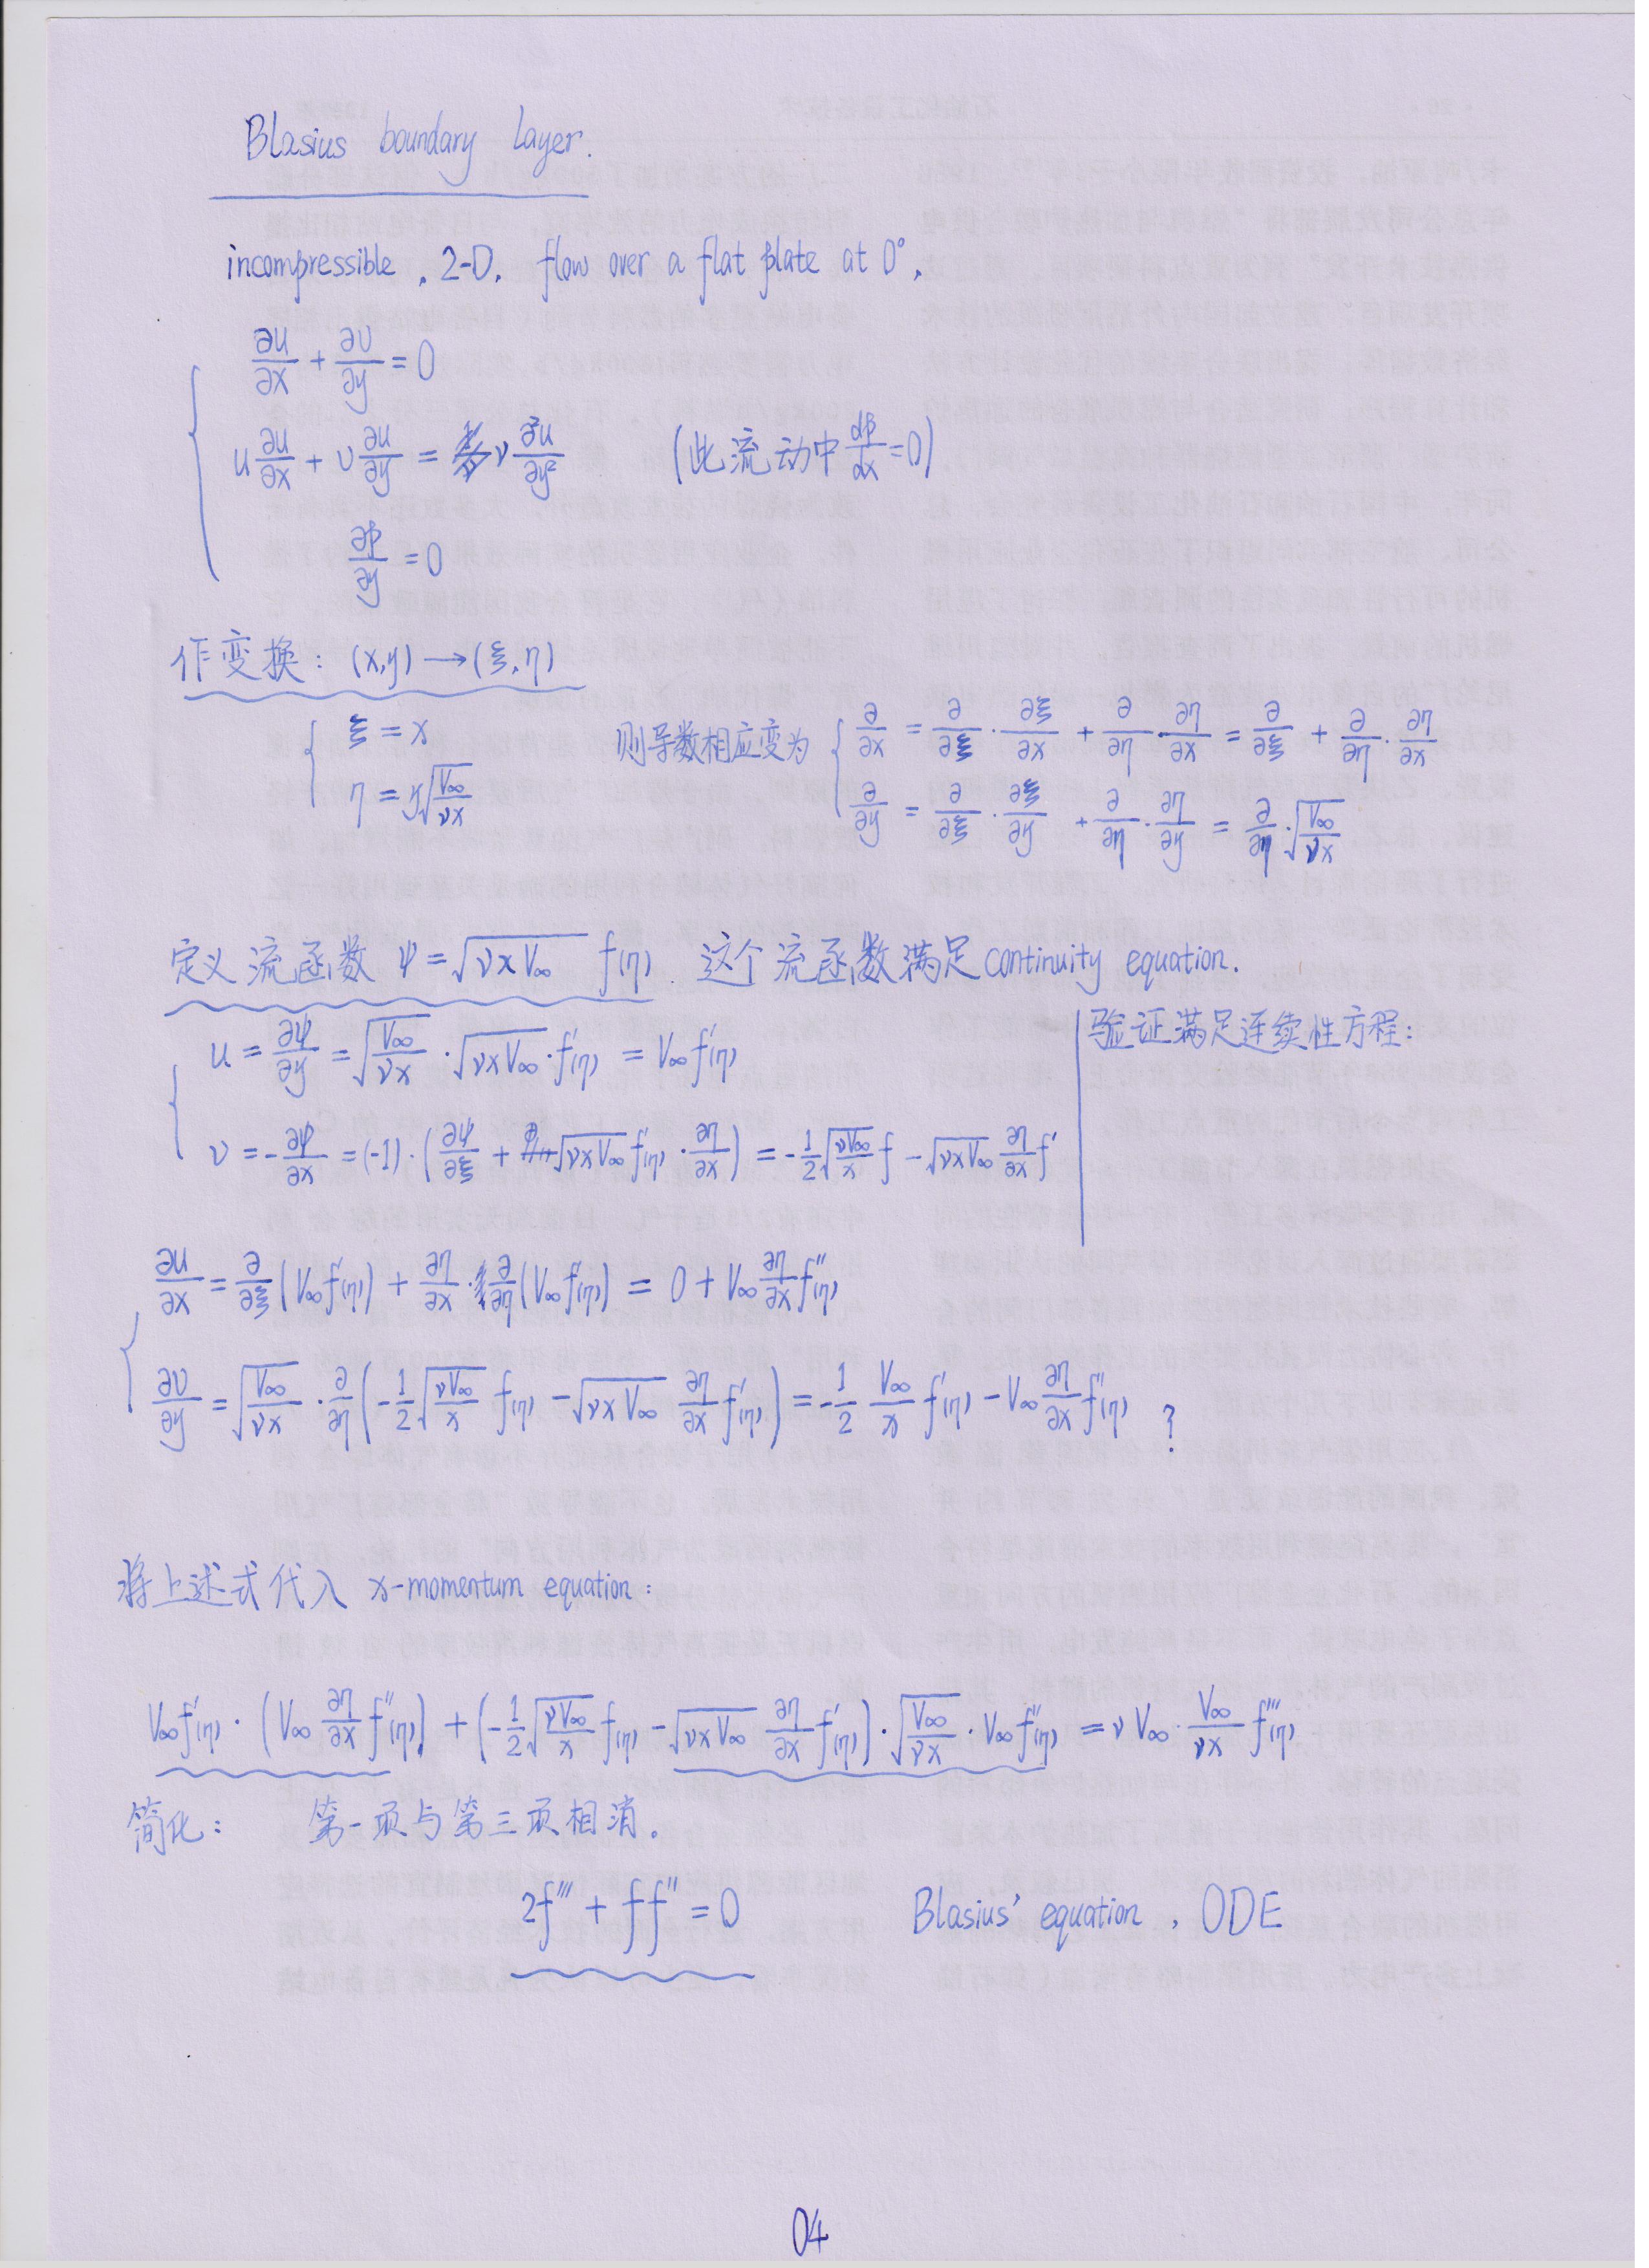 Blasius boundary layer.
incompressible, 2-D, flow over a flat plate at 0°,
∂u/∂x + ∂υ/∂y = 0
u ∂u/∂x + υ ∂u/∂y = ν ∂²u/∂y² (此流动中 dp/dx = 0)
∂p/∂y = 0
作变换: (x,y) → (ξ, η)
ξ = x
η = y√(V∞/νx)
则导数相应变为
∂/∂x = ∂/∂ξ · ∂ξ/∂x + ∂/∂η · ∂η/∂x = ∂/∂ξ + ∂/∂η · ∂η/∂x
∂/∂y = ∂/∂ξ · ∂ξ/∂y + ∂/∂η · ∂η/∂y = ∂/∂η · √(V∞/νx)
定义流函数 ψ = √(νxV∞) f(η) 这个流函数满足continuity equation.
u = ∂ψ/∂y = √(V∞/νx) · √(νxV∞) · f′(η) = V∞f′(η)
υ = -∂ψ/∂x = (-1)·(∂ψ/∂ξ + √(νxV∞) f′(η) · ∂η/∂x) = -1/2 √(νV∞/x) f - √(νxV∞) ∂η/∂x f′
验证满足连续性方程:
∂u/∂x = ∂/∂ξ (V∞f′(η)) + ∂η/∂x · ∂/∂η (V∞f′(η)) = 0 + V∞ ∂η/∂x f″(η)
∂υ/∂y = √(V∞/νx) · ∂/∂η (-1/2 √(νV∞/x) f(η) - √(νxV∞) ∂η/∂x f′(η)) = -1/2 V∞/x f′(η) - V∞ ∂η/∂x f″(η) ?
将上述式代入 x-momentum equation:
V∞f′(η) · (V∞ ∂η/∂x f″(η)) + (-1/2 √(νV∞/x) f(η) - √(νxV∞) ∂η/∂x f′(η)) · √(V∞/νx) · V∞f″(η) = ν V∞ · V∞/νx f‴(η)
简化: 第一项与第三项相消.
2f‴ + ff″ = 0 Blasius' equation, ODE
04